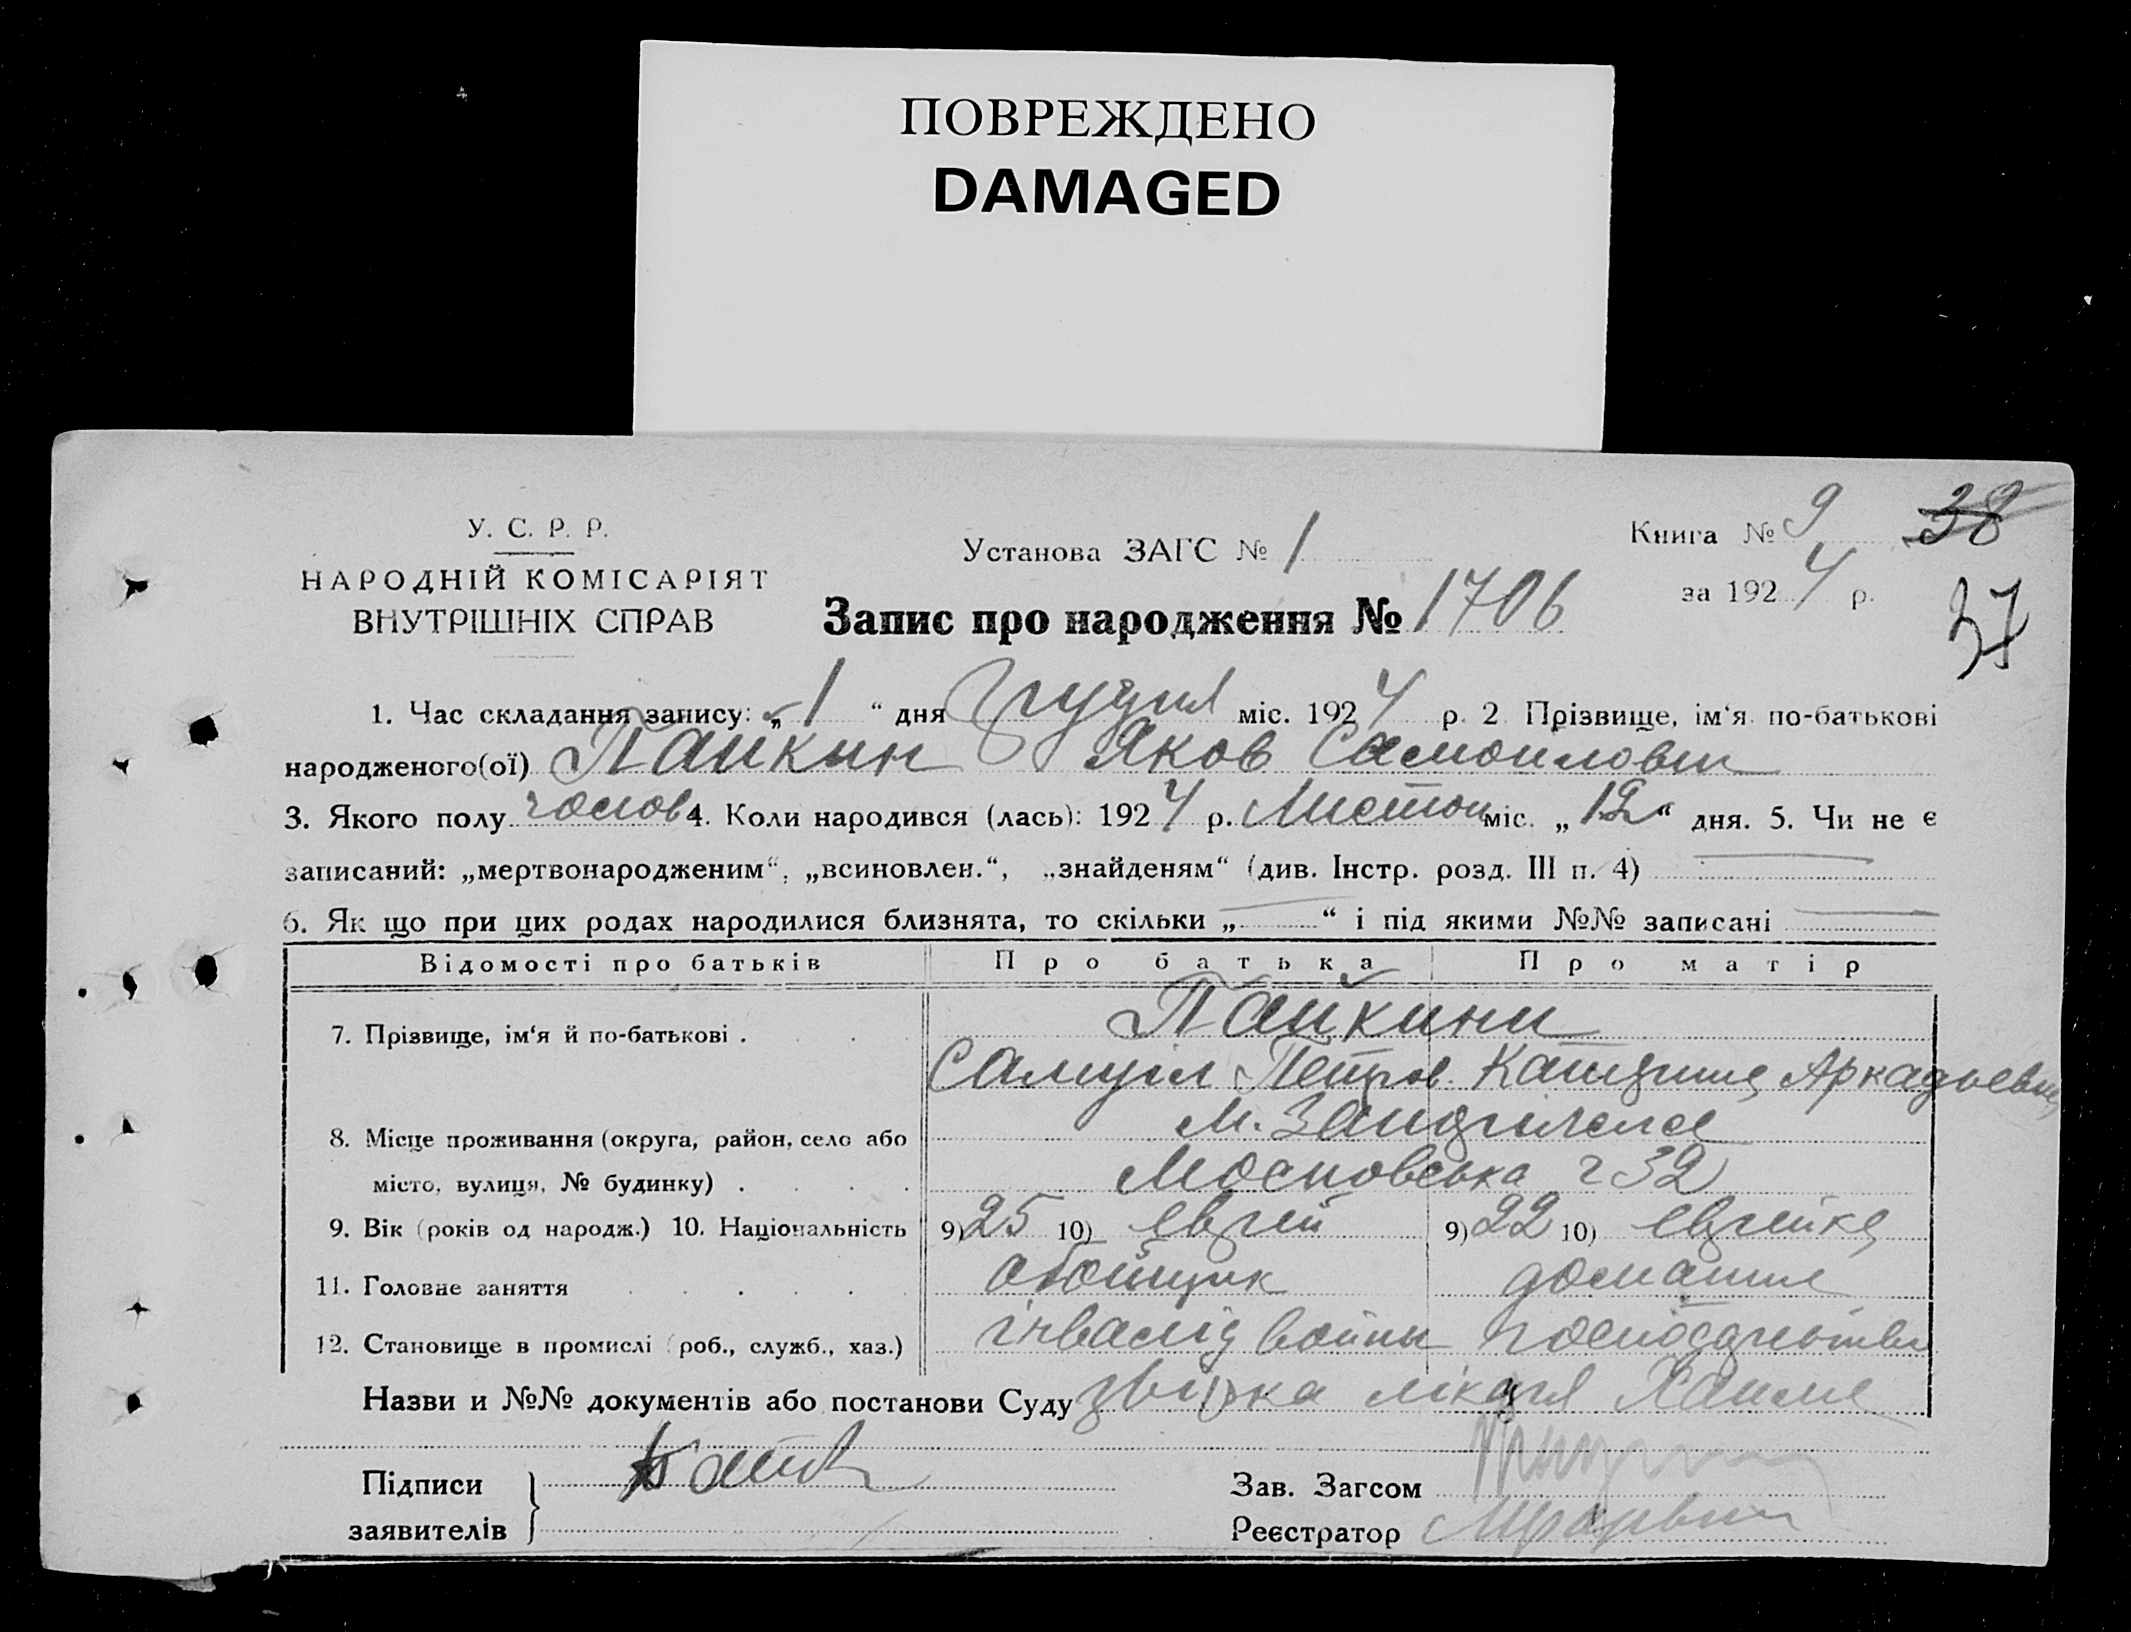 ПОВРЕЖДЕНО
DAMAGED
У. С. Р. Р.
НАРОДНІЙ КОМІСАРІЯТ
ВНУТРІШНІХ СПРАВ
Установа ЗАГС № 1
Книга № 9 38
за 1924 р.
37
Запис про народження № 1706
1. Час складання запису: „1“ дня Грудня міс. 1924 р. 2 Прізвище, ім‘я по-батькові
народженого(ої) Пайкин Яков Самойлович
3. Якого полу чолов 4. Коли народився (лась): 1924 р. Листоп міс. „12“ дня. 5. Чи не є
записаний: „мертвонародженим“, „всиновлен.“, „знайденям“ (див. Інстр. розд. III п. 4)
6. Як що при цих родах народилися близнята, то скільки „ “ і під якими №№ записані
Відомості про батьків Про батька Про матір
7. Прізвище, ім‘я й по-батькові . Пайкини
Самуіл Петров. Катерина Аркадьевна
8. Місце проживання (округа, район, село або м.
місто, вулиця, № будинку) . Московська 32
9. Вік (років од народж.) 10. Національність 9) 25 10) еврей 9) 22 10) еврейка
11. Головне заняття обойщик домашнє
12. Становище в промислі (роб., служб., хаз.) інвалід войни господарство
Назви и №№ документів або постанови Суду лікаря
Підписи
заявителів
Зав. Загсом
Реєстратор